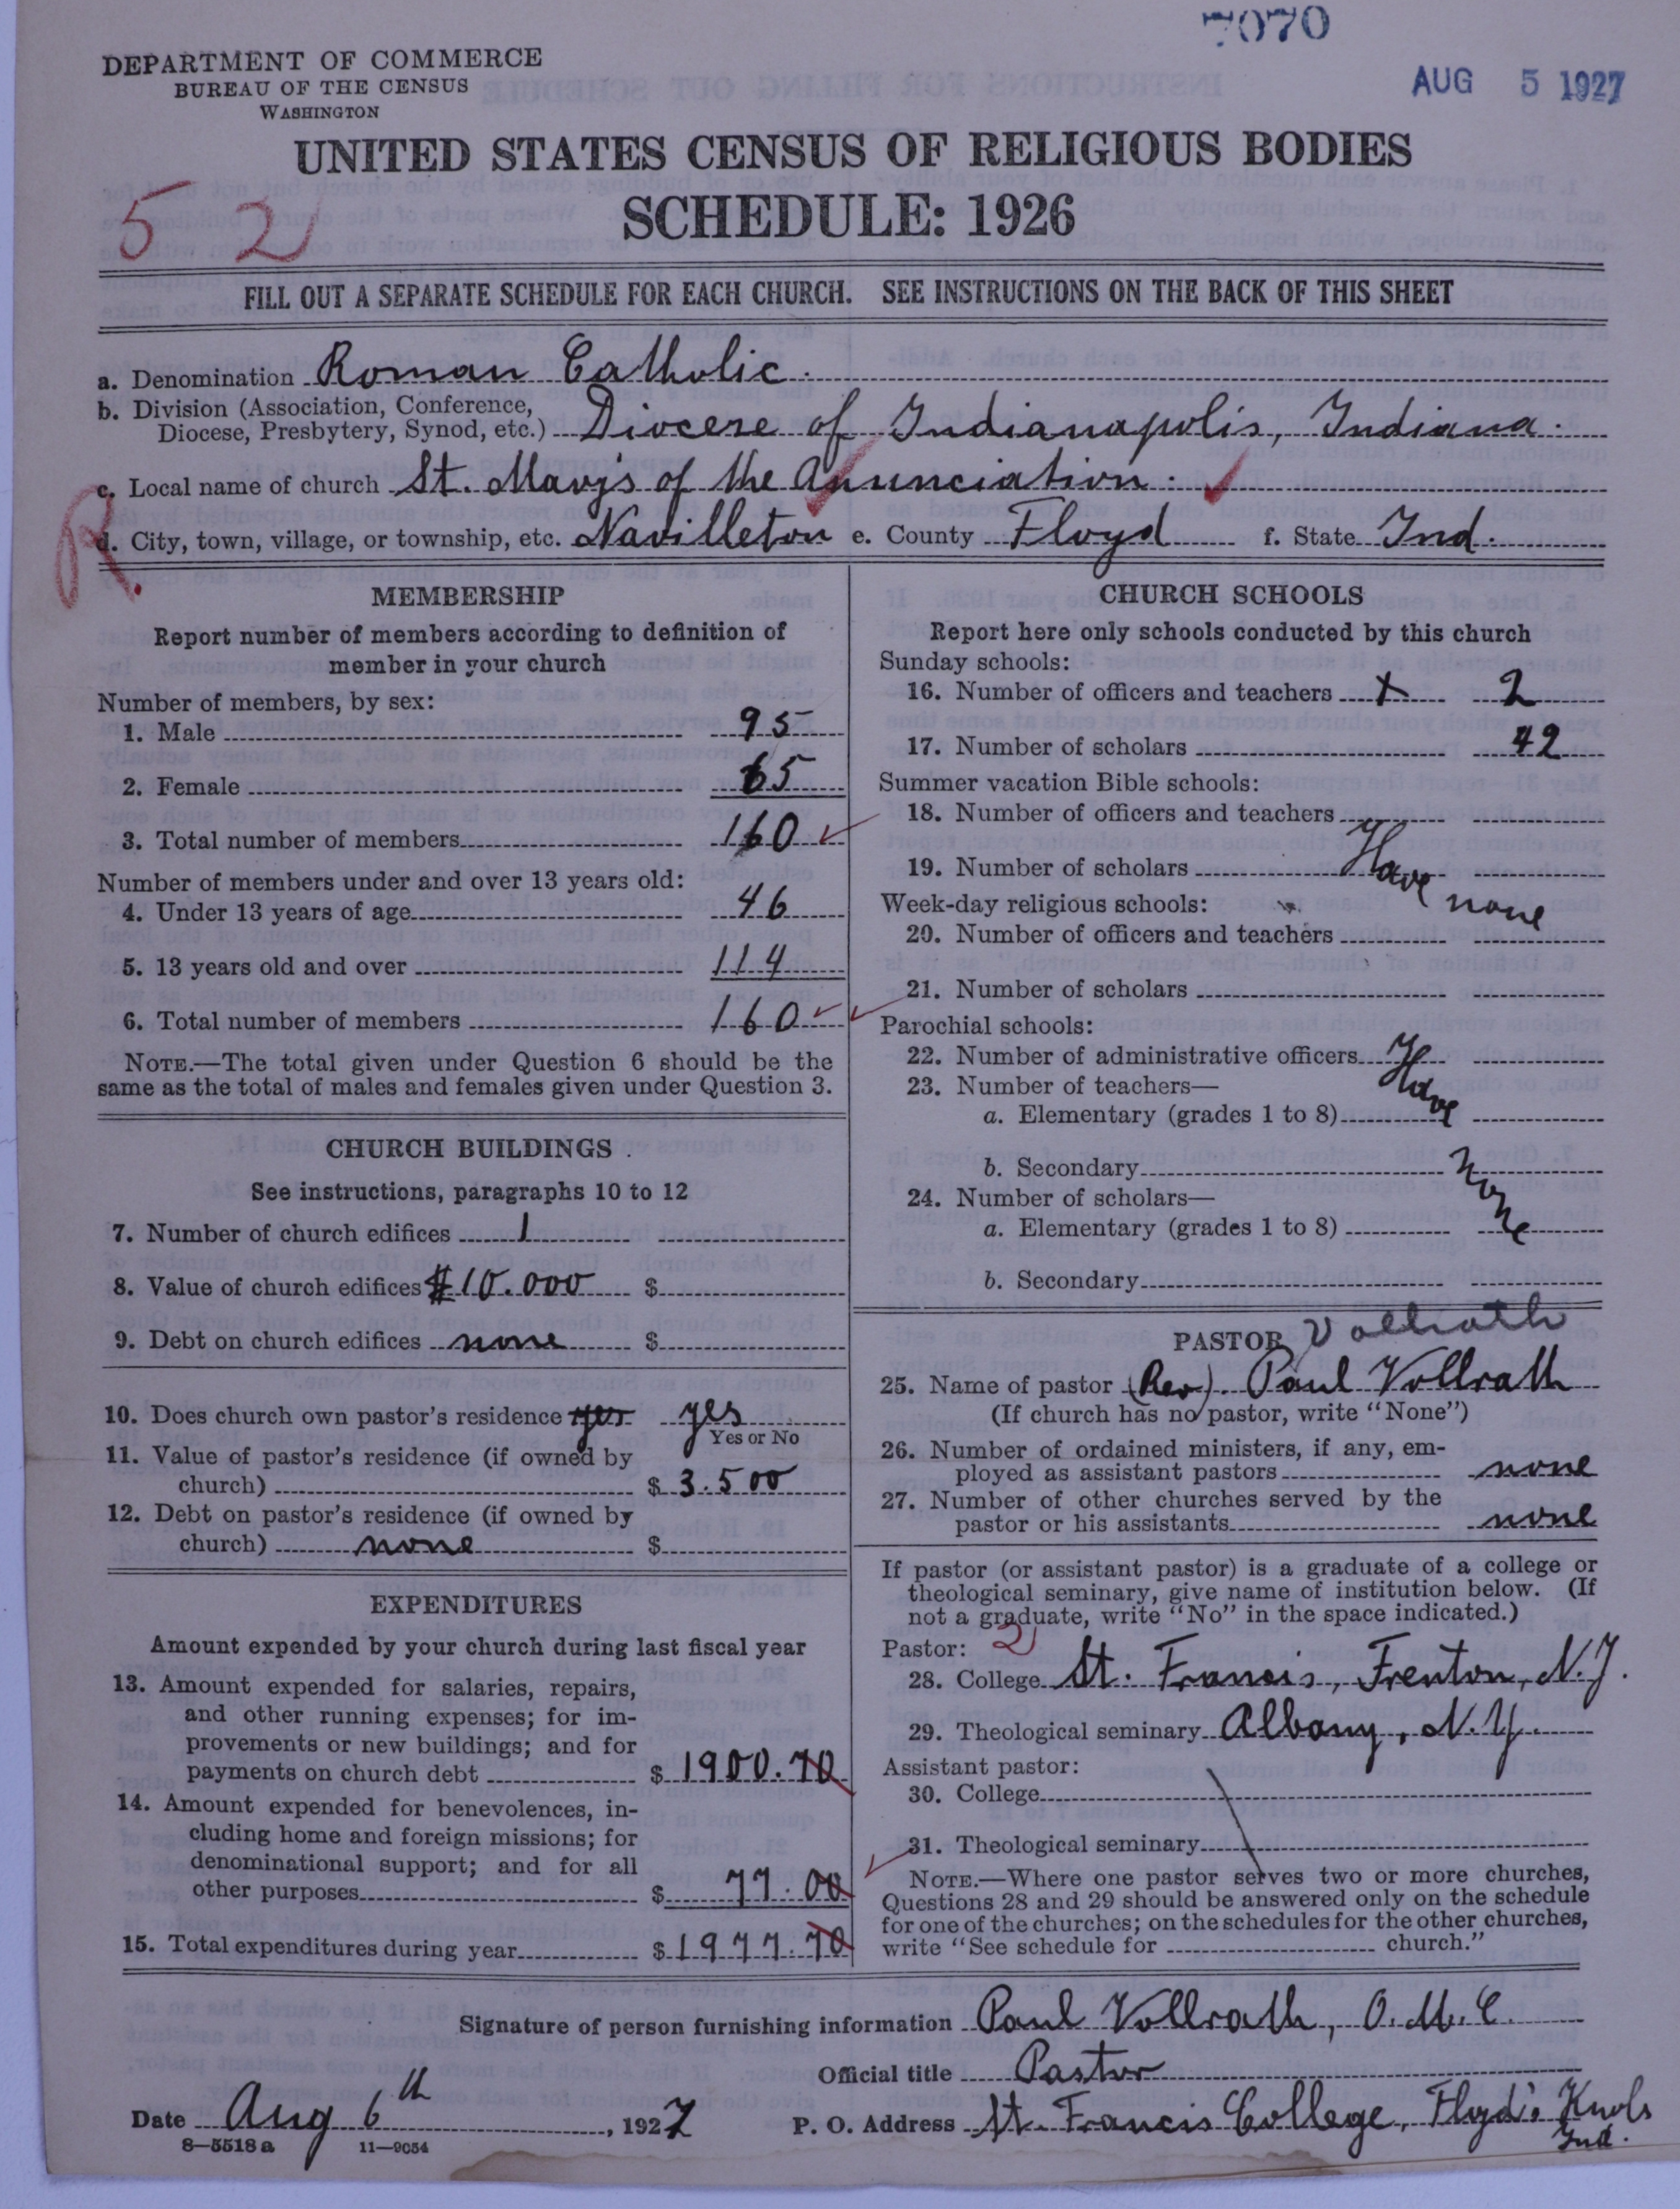 7070
DEPARTMENT OF COMMERCE
BUREAU OF THE CENSUS
WASHINGTON
AUG 5 1927
UNITED STATES CENSUS OF RELIGIOUS BODIES
SCHEDULE: 1926
5 2
FILL OUT A SEPARATE SCHEDULE FOR EACH CHURCH. SEE INSTRUCTIONS ON THE BACK OF THIS SHEET
a. Denomination Roman Catholic.
b. Division (Association, Conference, Diocese, Presbytery, Synod, etc.) Diocese of Indianapolis, Indiana.
c. Local name of church St. Mary's of the Anunciation.
R.
d. City, town, village, or township, etc. Navilleton e. County Floyd f. State Ind.
MEMBERSHIP
Report number of members according to definition of
member in your church
Number of members, by sex:
1. Male 95
2. Female 65
3. Total number of members 160
Number of members under and over 13 years old:
4. Under 13 years of age 46
5. 13 years old and over 114
6. Total number of members 160
NOTE.—The total given under Question 6 should be the
same as the total of males and females given under Question 3.
CHURCH BUILDINGS
See instructions, paragraphs 10 to 12
7. Number of church edifices 1
8. Value of church edifices $10.000 $
9. Debt on church edifices none $
10. Does church own pastor's residence yes yes
Yes or No
11. Value of pastor's residence (if owned by
church) $ 3.500
12. Debt on pastor's residence (if owned by
church) none $
EXPENDITURES
Amount expended by your church during last fiscal year
13. Amount expended for salaries, repairs,
and other running expenses; for im-
provements or new buildings; and for
payments on church debt $ 1900.70
14. Amount expended for benevolences, in-
cluding home and foreign missions; for
denominational support; and for all
other purposes $ 77.00
15. Total expenditures during year $ 1977.70
CHURCH SCHOOLS
Report here only schools conducted by this church
Sunday schools:
16. Number of officers and teachers x 2
17. Number of scholars 42
Summer vacation Bible schools:
18. Number of officers and teachers
19. Number of scholars Have none
Week-day religious schools:
20. Number of officers and teachers
21. Number of scholars
Parochial schools:
22. Number of administrative officers Have
23. Number of teachers—
a. Elementary (grades 1 to 8)
b. Secondary none
24. Number of scholars—
a. Elementary (grades 1 to 8)
b. Secondary
PASTOR Vollrath
25. Name of pastor (Rev). Paul Vollrath
(If church has no pastor, write "None")
26. Number of ordained ministers, if any, em-
ployed as assistant pastors none
27. Number of other churches served by the
pastor or his assistants none
If pastor (or assistant pastor) is a graduate of a college or
theological seminary, give name of institution below. (If
not a graduate, write "No" in the space indicated.)
Pastor: 2
28. College St. Francis, Trenton, N.J.
29. Theological seminary Albany, N.Y.
Assistant pastor:
30. College
31. Theological seminary
NOTE.—Where one pastor serves two or more churches,
Questions 28 and 29 should be answered only on the schedule
for one of the churches; on the schedules for the other churches,
write "See schedule for church."
Signature of person furnishing information Paul Vollrath, O.M.C.
Official title Pastor
Date Aug 6th, 1927 P. O. Address St. Francis College, Floyd's Knobs
Ind.
8—5518 a 11—9054